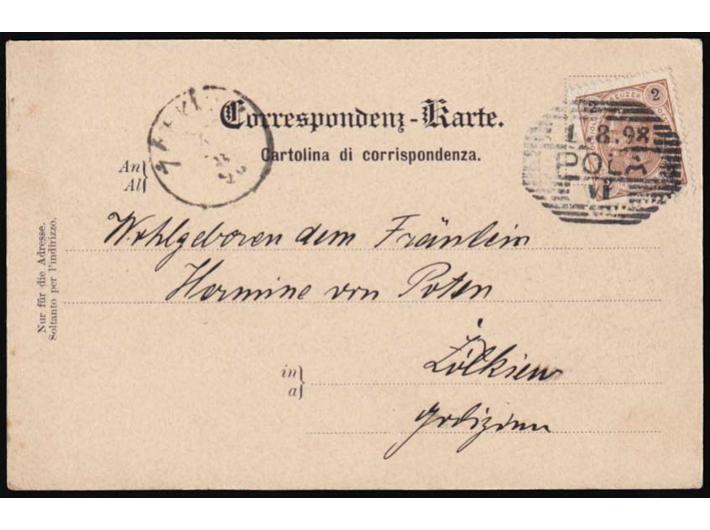 Correspondenz-Karte.
Cartolina di corrispondenza.
2 2
1.8.98
POLA
VI
An
Al
Wohlgeboren dem Fräulein
Hermine von Poten
in
a
Żółkiew
Nur für die Adresse.
Soltanto per l'indirizzo.